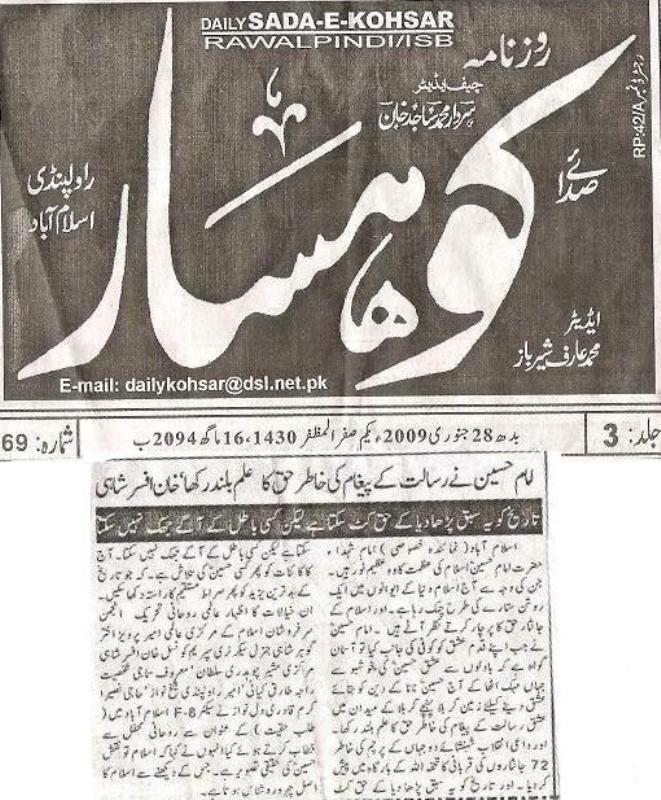 DAILY SADA-E-KOHSAR
RAWALPINDI/ISB
روزنامہ
چیف ایڈیٹر
سردار محمد ساجد خان
رجسٹرڈ نمبر RP:42/A
صدائے
کوہسار
راولپنڈی
اسلام آباد
ایڈیٹر
محمد عارف شیرباز
E-mail: dailykohsar@dsl.net.pk
جلد: 3
بدھ 28 جنوری 2009ء یکم صفر المظفر 1430، 16 ماگھ 2094 ب
شمارہ: 69
امام حسین نے رسالت کے پیغام کی خاطر حق کا علم بلند رکھا‘ خان افسر شاہی
تاریخ کو یہ سبق پڑھا دیا کے حق کٹ سکتا ہے لیکن کسی باطل کے آگے جھک نہیں سکتا
اسلام آباد (نمائندہ خصوصی) امام شہداء
حضرت امام حسین اسلام کی عظمت کا وہ عظیم نور ہیں۔
جن کی وجہ سے آج اسلام دنیا کے ایوانوں میں ایک
روشن ستارے کی طرح چمک رہا ہے۔ اور اسلام کے
جانثار حق کا پرچار کرتے نظر آتے ہیں۔ امام حسین
نے جب اپنے قدم عشق کو کوفی کی جانب کیا تو آسمان
گواہ ہے کہ بادلوں سے عشق حسین کی خوشبو سے
جہاں مہک اٹھا کے آج حسین نانا کے دین کو بقائے
عشق دینے کیلئے زمین کربلا پہنچے کربلا کے میدان میں
عشق رسالت کے پیغام کی خاطر حق کا علم بلند رکھا۔
اور داعی انقلاب شہنشائے دو جہاں کے پرچم کی خاطر
72 جانثاروں کی قربانی کا تحفہ اللہ کے بارگاہ میں پیش
کر دیا۔ اور تاریخ کو یہ سبق پڑھا دیا کے حق کٹ
سکتا ہے لیکن کسی باطل کے آگے جھک نہیں سکتا۔ آج
کائنات کو پھر کسی حسین کی تلاش ہے۔ کہ جو تاریخ
کے بدترین یزید کو پھر صراط مستقیم کا راستہ دکھا سکیں۔
ان خیالات کا اظہار عالمی روحانی تحریک انجمن
سرفروشان اسلام کے مرکزی عالمی امیر پرویز اختر
گوہر شاہی جنرل سیکرٹری سپریم کونسل خان افسر شاہی
مرکزی مشیر چوہدری سلطان‘ معروف سماجی شخصیت
راجہ طارق کیانی‘ امیر راولپنڈی شیخ نواز‘ حاجی نصیر‘
کرم قادری دل نواز نے سیکٹر F-8 اسلام آباد میں (
طلب حقیقت) کے عنوان سے روحانی محفل سے
خطاب کرتے ہوئے کیا انہوں نے کہا کہ اسلام تو نقش
حسین کی حقیقی تصویر ہے۔ جس کے دیکھنے سے اسلام کا
اصل چہرہ روشناس ہوتا ہے۔